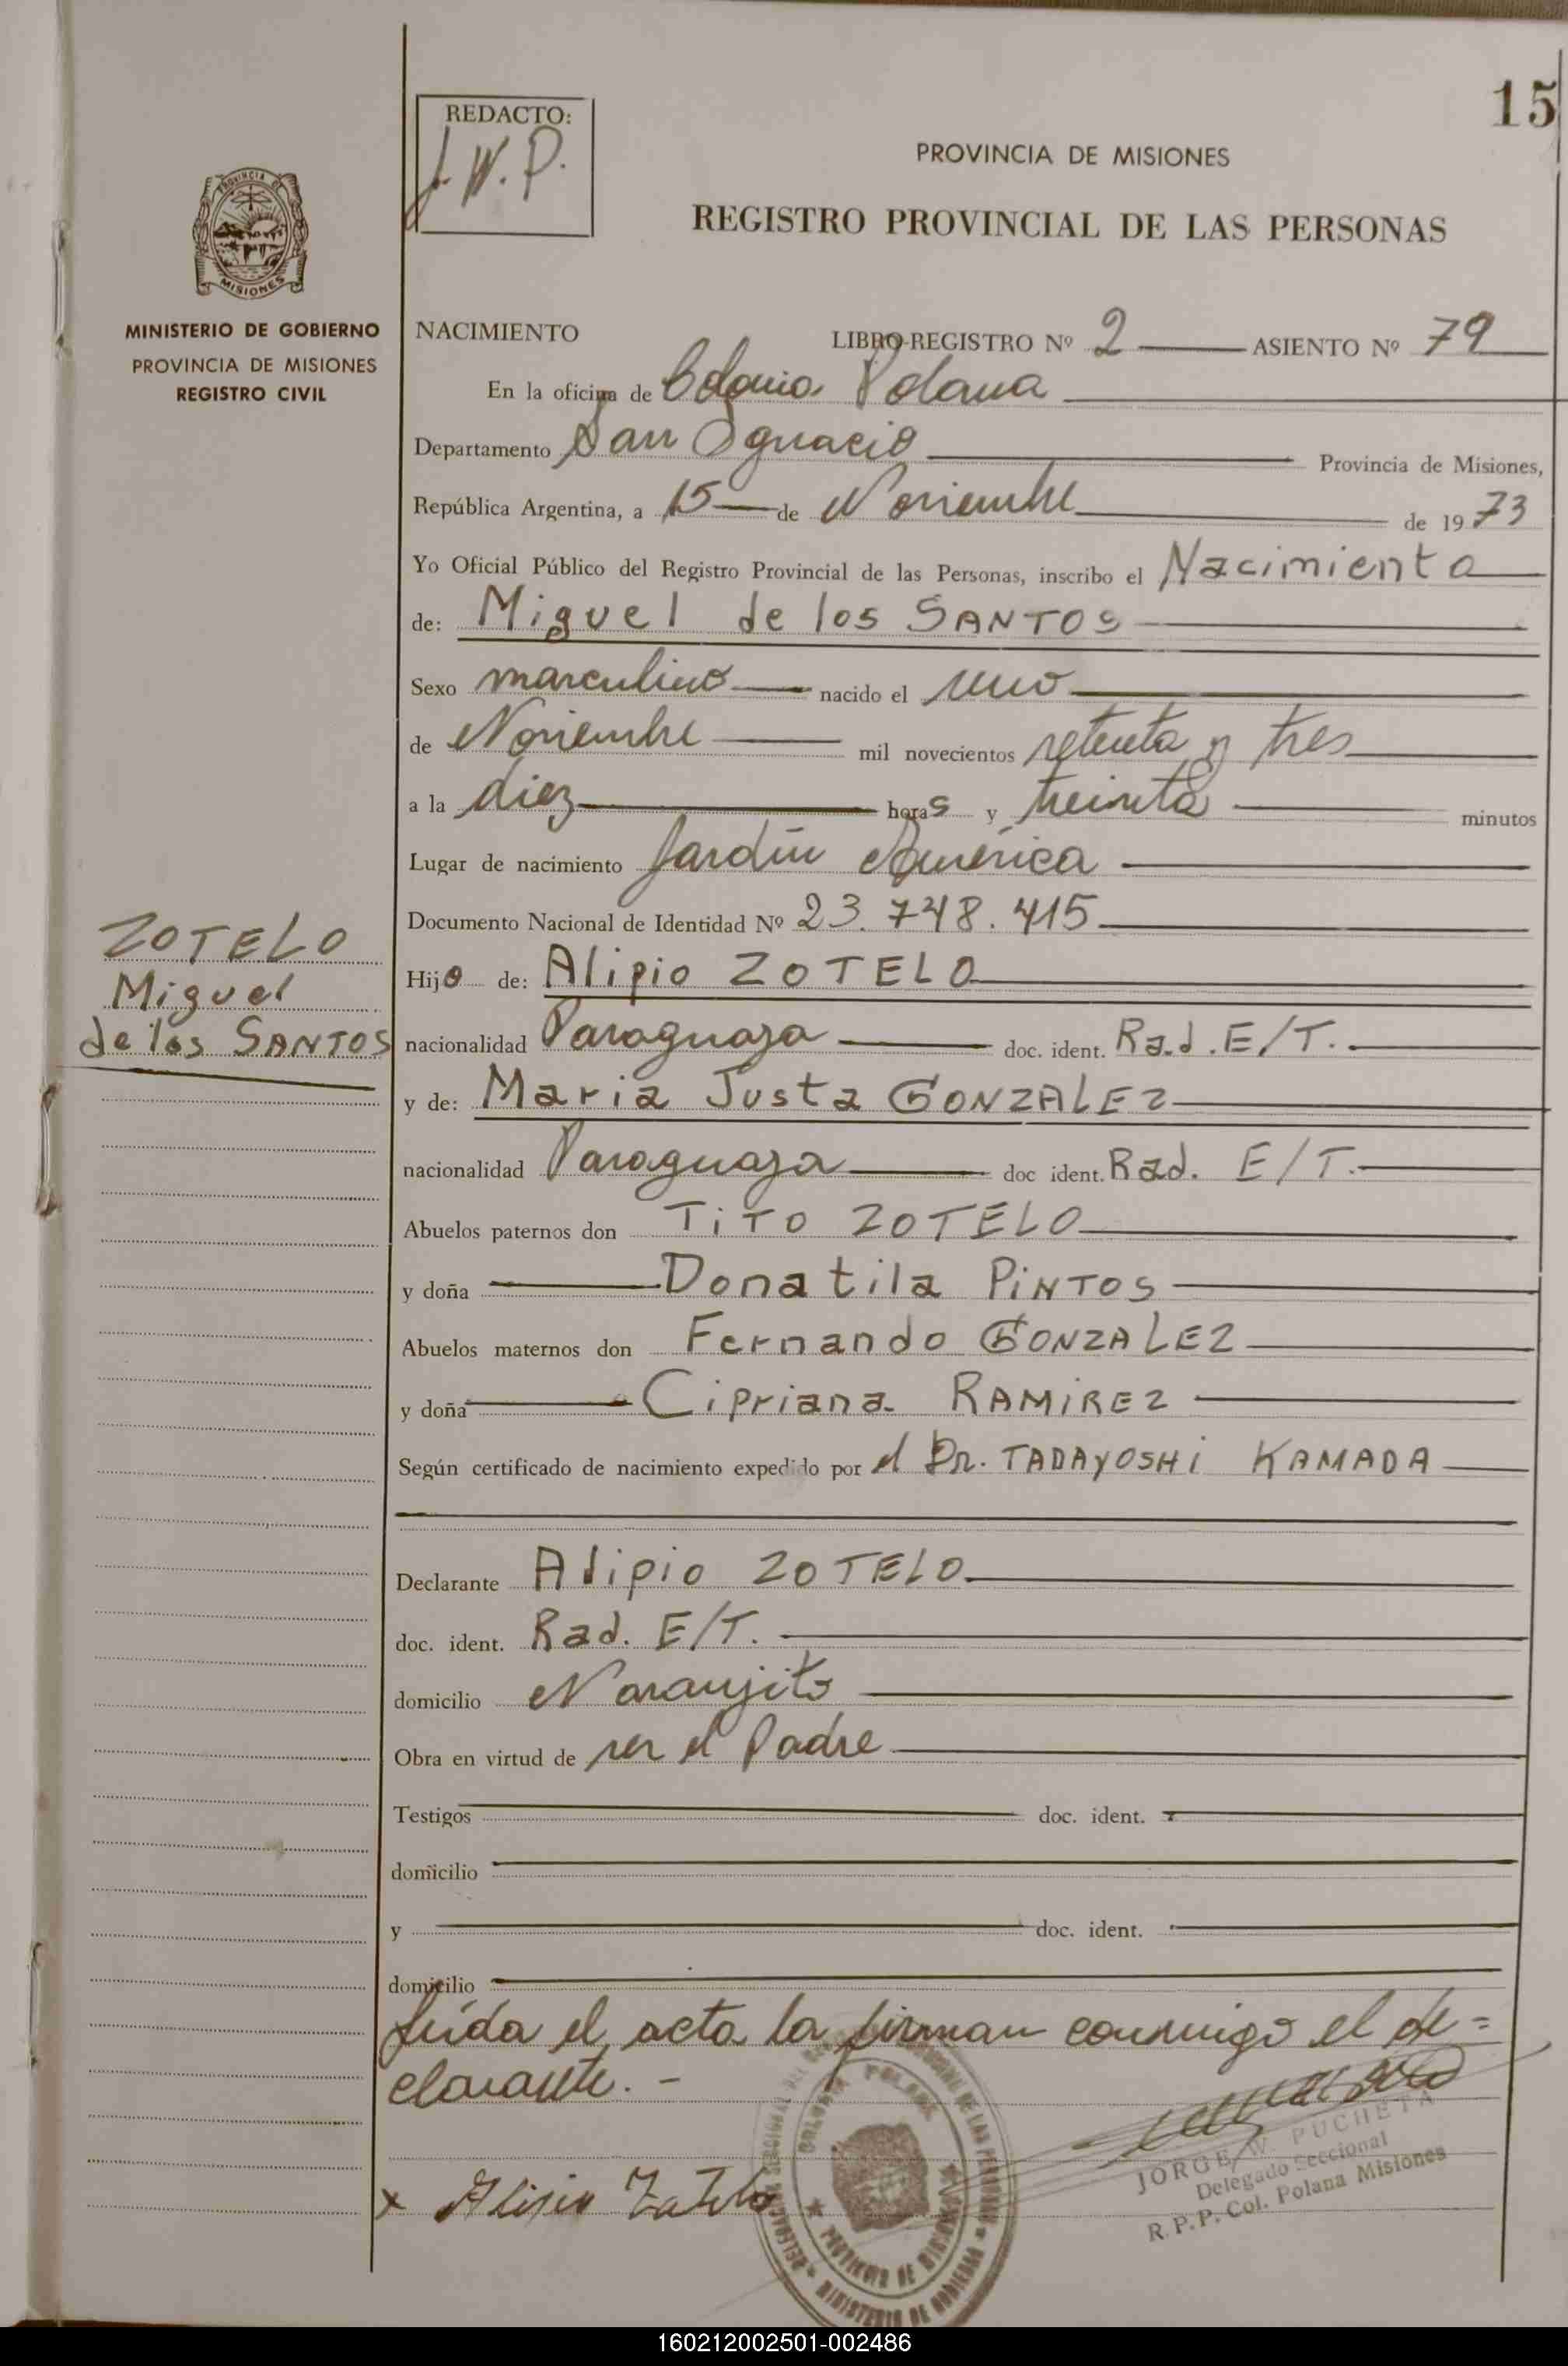 15
REDACTO:
J. W. P.
PROVINCIA DE MISIONES
REGISTRO PROVINCIAL DE LAS PERSONAS
PROVINCIA DE
MISIONES
MINISTERIO DE GOBIERNO
PROVINCIA DE MISIONES
REGISTRO CIVIL
NACIMIENTO LIBRO-REGISTRO Nº 2 ASIENTO Nº 79
En la oficina de Colonia Polana
Departamento San Ignacio Provincia de Misiones,
República Argentina, a 15 de Noviembre de 1973
Yo Oficial Público del Registro Provincial de las Personas, inscribo el Nacimiento
de: Miguel de los SANTOS
Sexo masculino nacido el uno
de Noviembre mil novecientos setenta y tres
a la diez horas y treinta minutos
Lugar de nacimiento Jardín América
Documento Nacional de Identidad Nº 23.748.415
ZOTELO
Miguel
de los SANTOS
Hijo de: Alipio ZOTELO
nacionalidad Paraguaya doc. ident. Rad. E/T.
y de: Maria Justa GONZALEZ
nacionalidad Paraguaya doc ident. Rad. E/T.
Abuelos paternos don TiTO ZOTELO
y doña Donatila PiNTOS
Abuelos maternos don Fernando GONZALEZ
y doña Cipriana RAMiREZ
Según certificado de nacimiento expedido por el Dr. TADAYOSHi KAMADA
Declarante Alipio ZOTELO
doc. ident. Rad. E/T.
domicilio Naranjito
Obra en virtud de ser el Padre
Testigos doc. ident.
domicilio
y doc. ident.
domicilio
Leída el acta la firman conmigo el de=
clarante. -
x Alipio Zotelo
COLONIA POLANA
PROVINCIA DE MISIONES
MINISTERIO DE GOBIERNO
JORGE W. PUCHETA
Delegado Seccional
R.P.P. Col. Polana Misiones
160212002501-002486